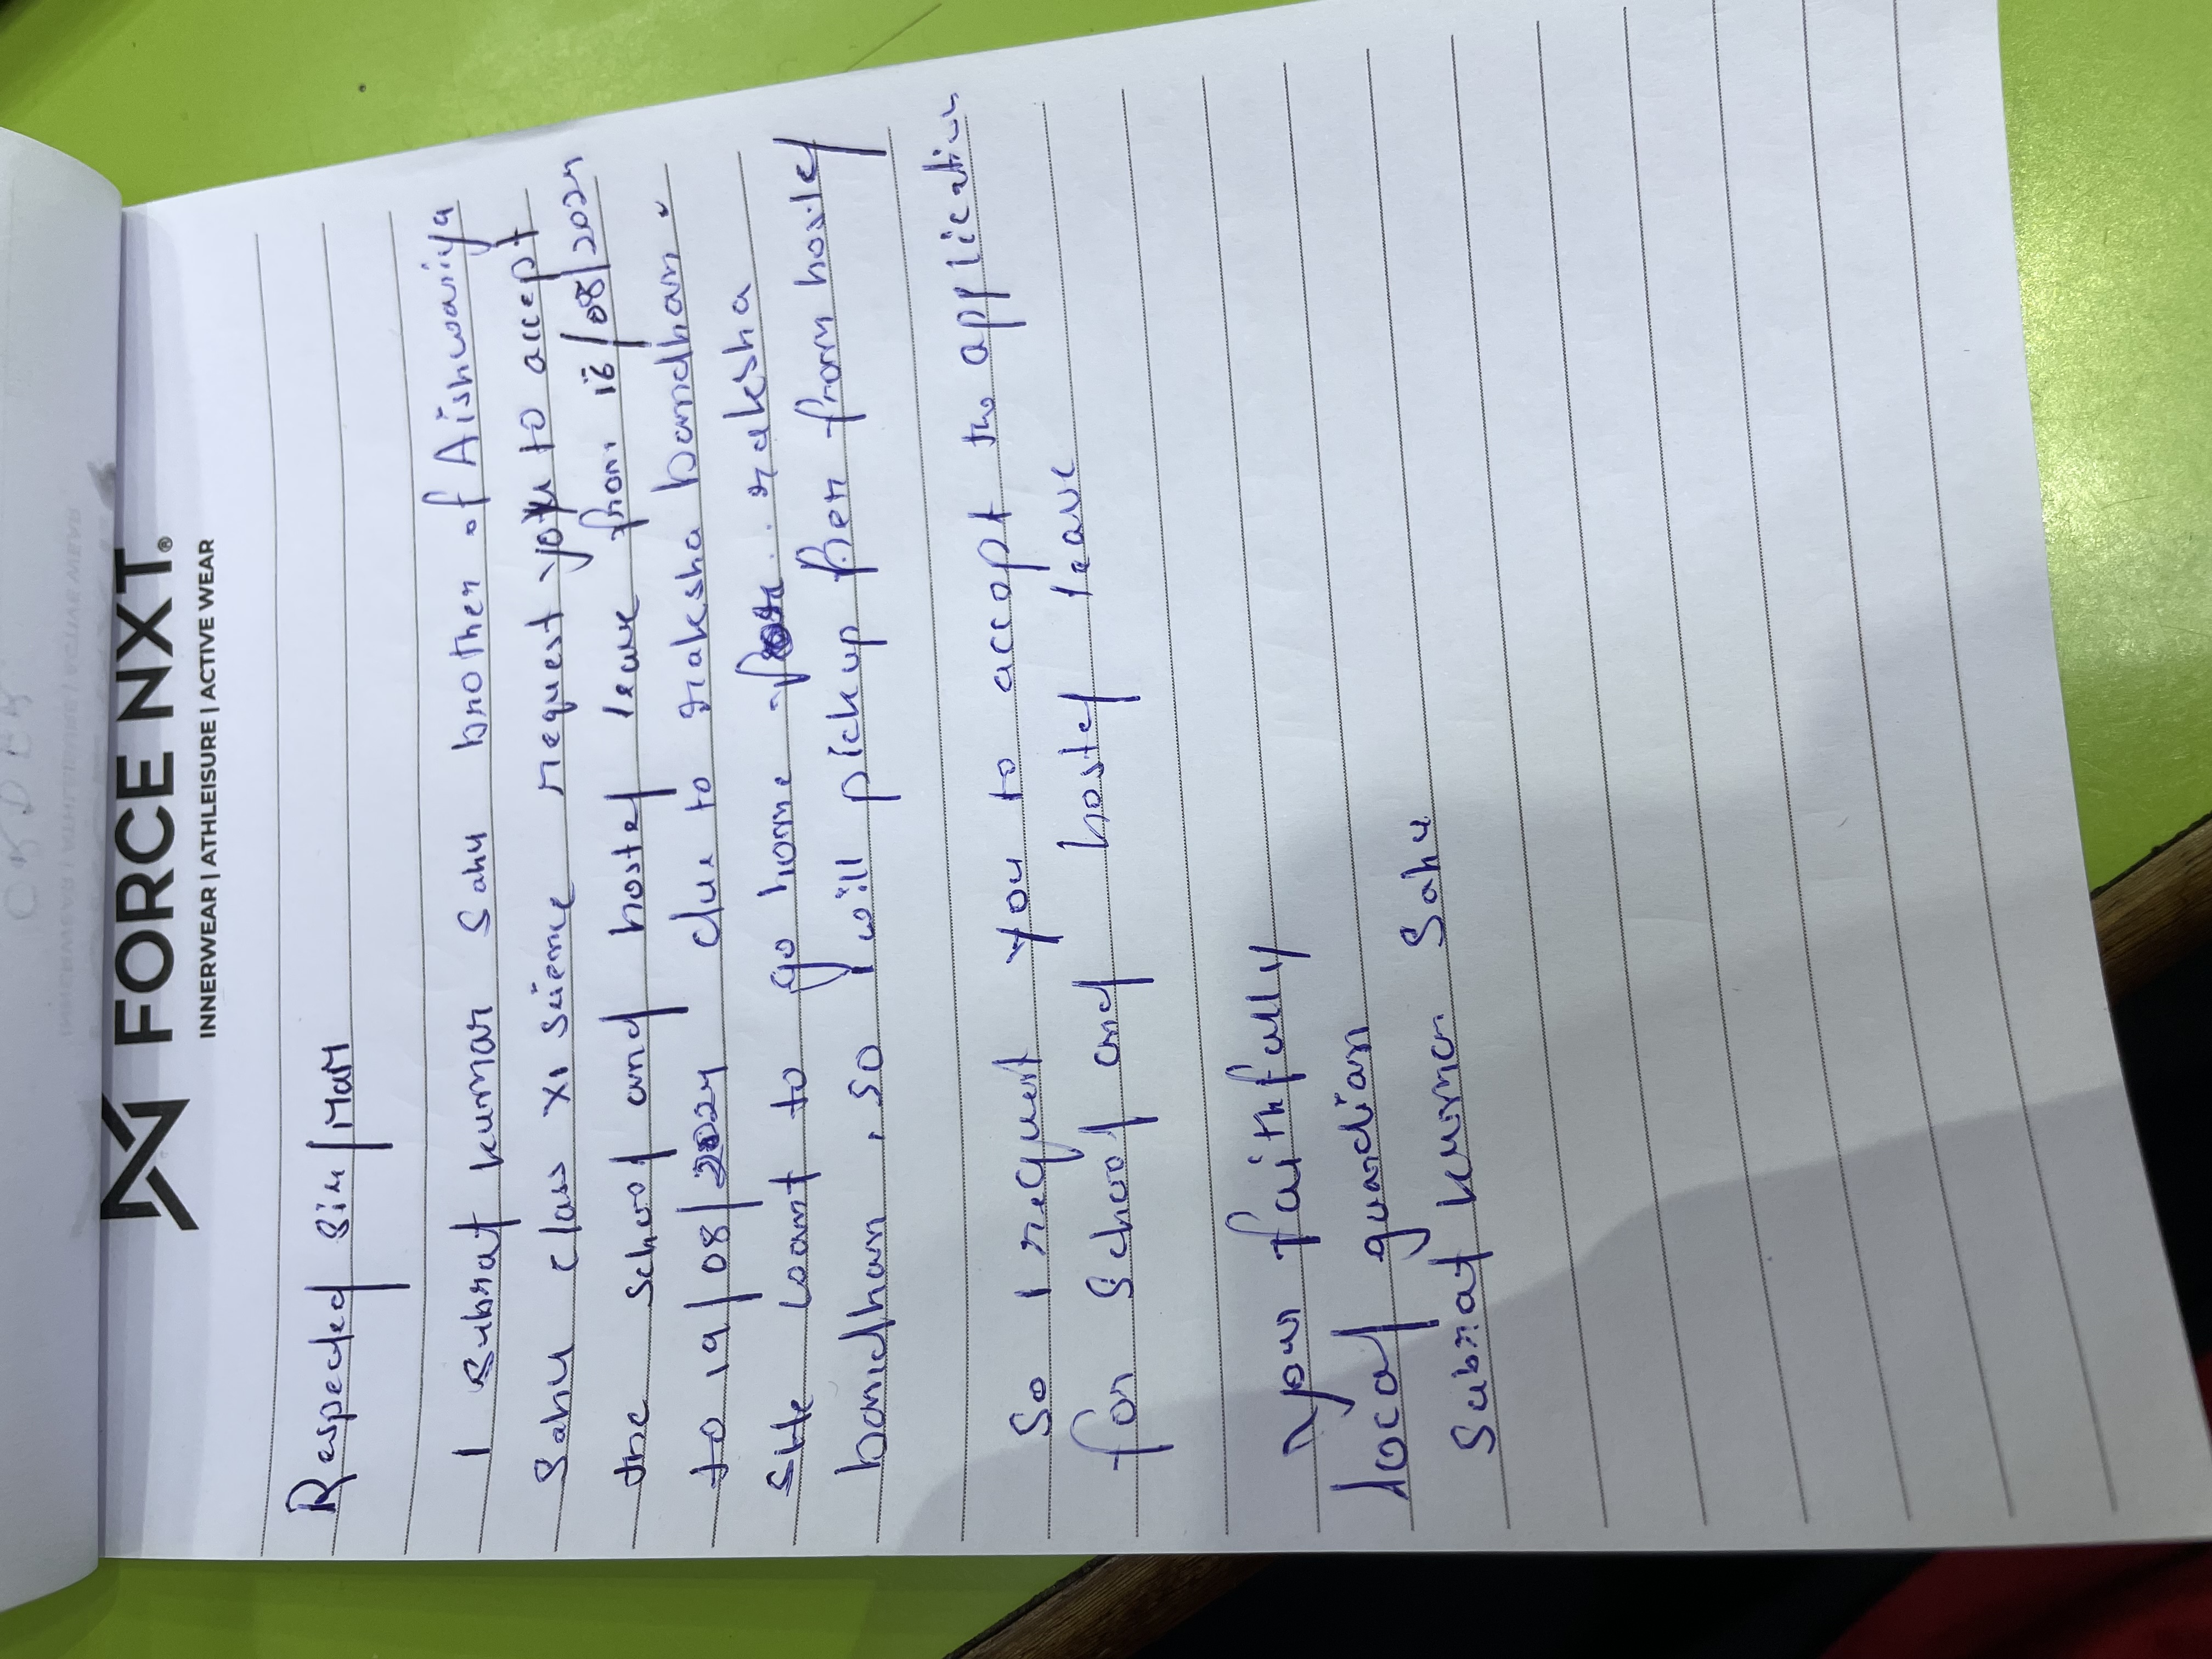 FORCE NXT®
INNERWEAR | ATHLEISURE | ACTIVE WEAR
Respected Sir/Mam
I Subrat kumar Sahu brother of Aishwariya
Sahu class XI Science request you to accept
the school and hostel leave from 16/08/2024
to 19/08/2024 due to raksha bandhan.
She want to go home raksha
bandhan, so I will pickup her from hostel
So I request you to accept the application
for School and hostel leave
Your faithfully
local guardian
Subrat Kumar Sahu